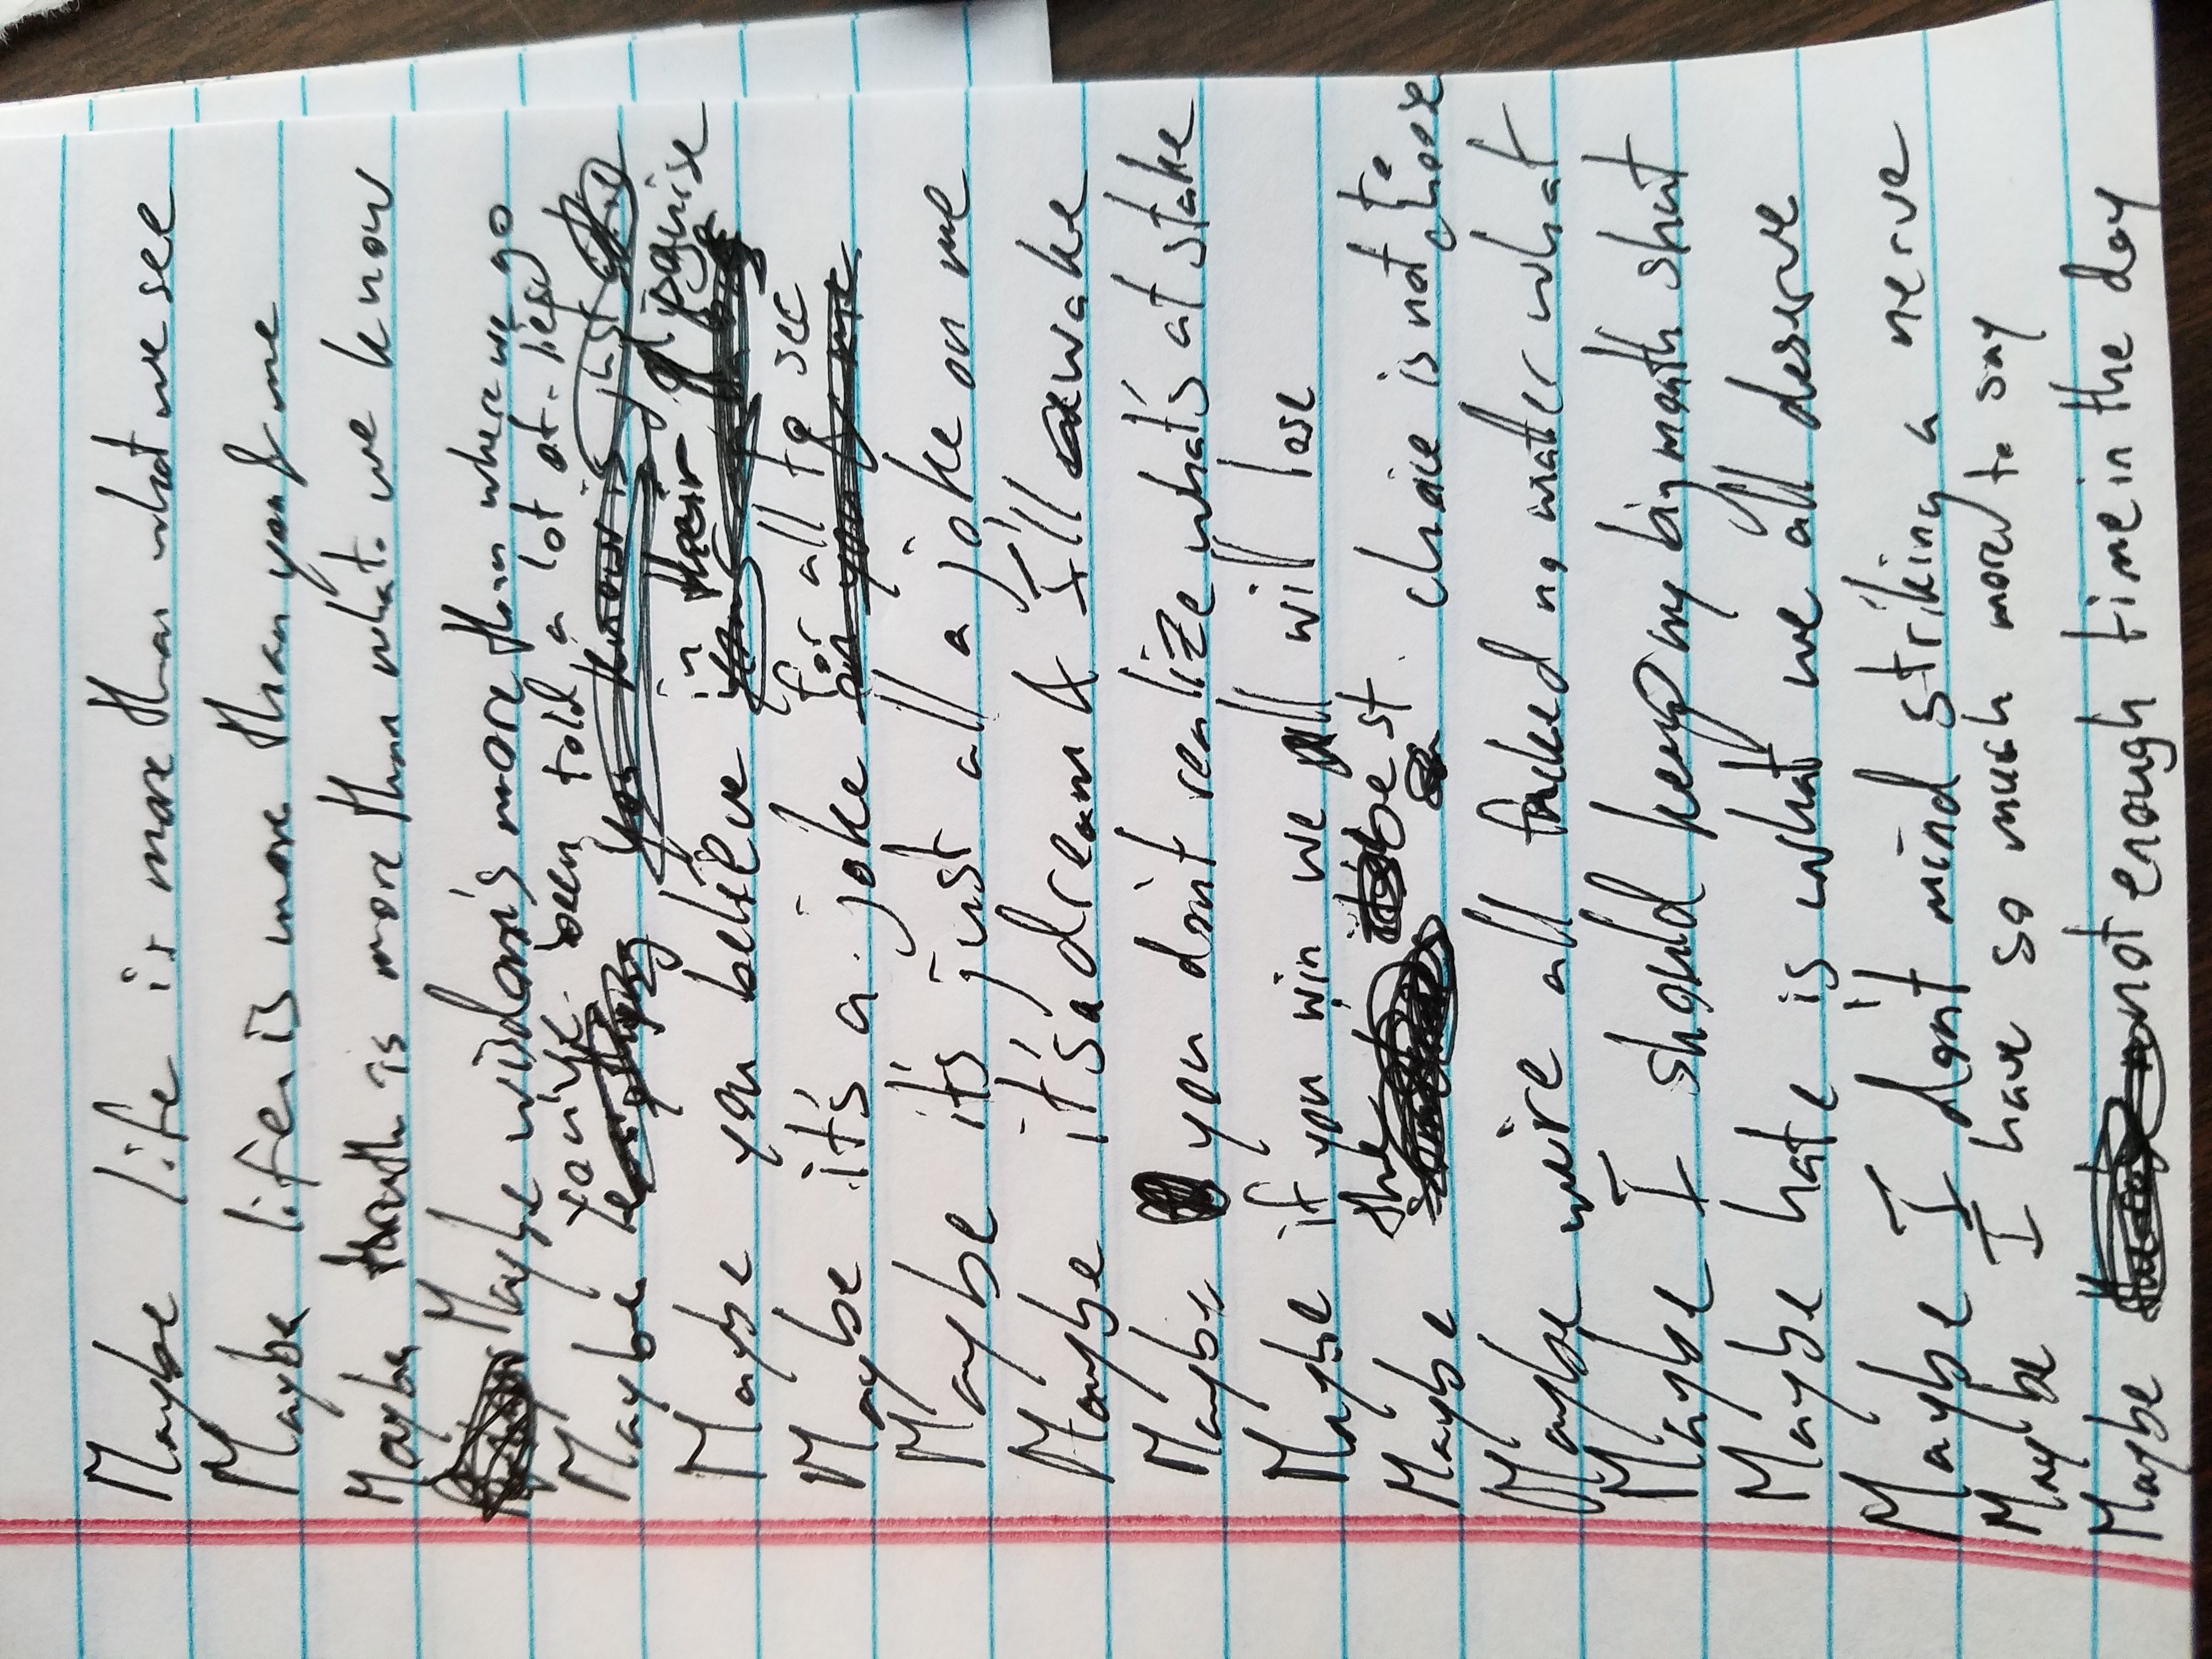 Maybe life is more than what we see
Maybe life is more than you & me
Maybe thruth is more than what we know
Maybe wisdom's more than where we go
you've been told a lot of lies
Maybe everything you know is just
in their disguise
Maybe you believe
for all to see
Maybe it's a joke on you & me
Maybe it's just all a joke on me
Maybe it's a dream & I'll wake
Maybe you don't realize what's at stake
Maybe if you win we all will lose
the best to
Maybe sometimes choice is not choose
Maybe we're all fucked no matter what
Maybe I should keep my big mouth shut
Maybe hate is what we all deserve
Maybe I don't mind striking a nerve
Maybe I have so much more to say
Maybe there's not enough time in the day